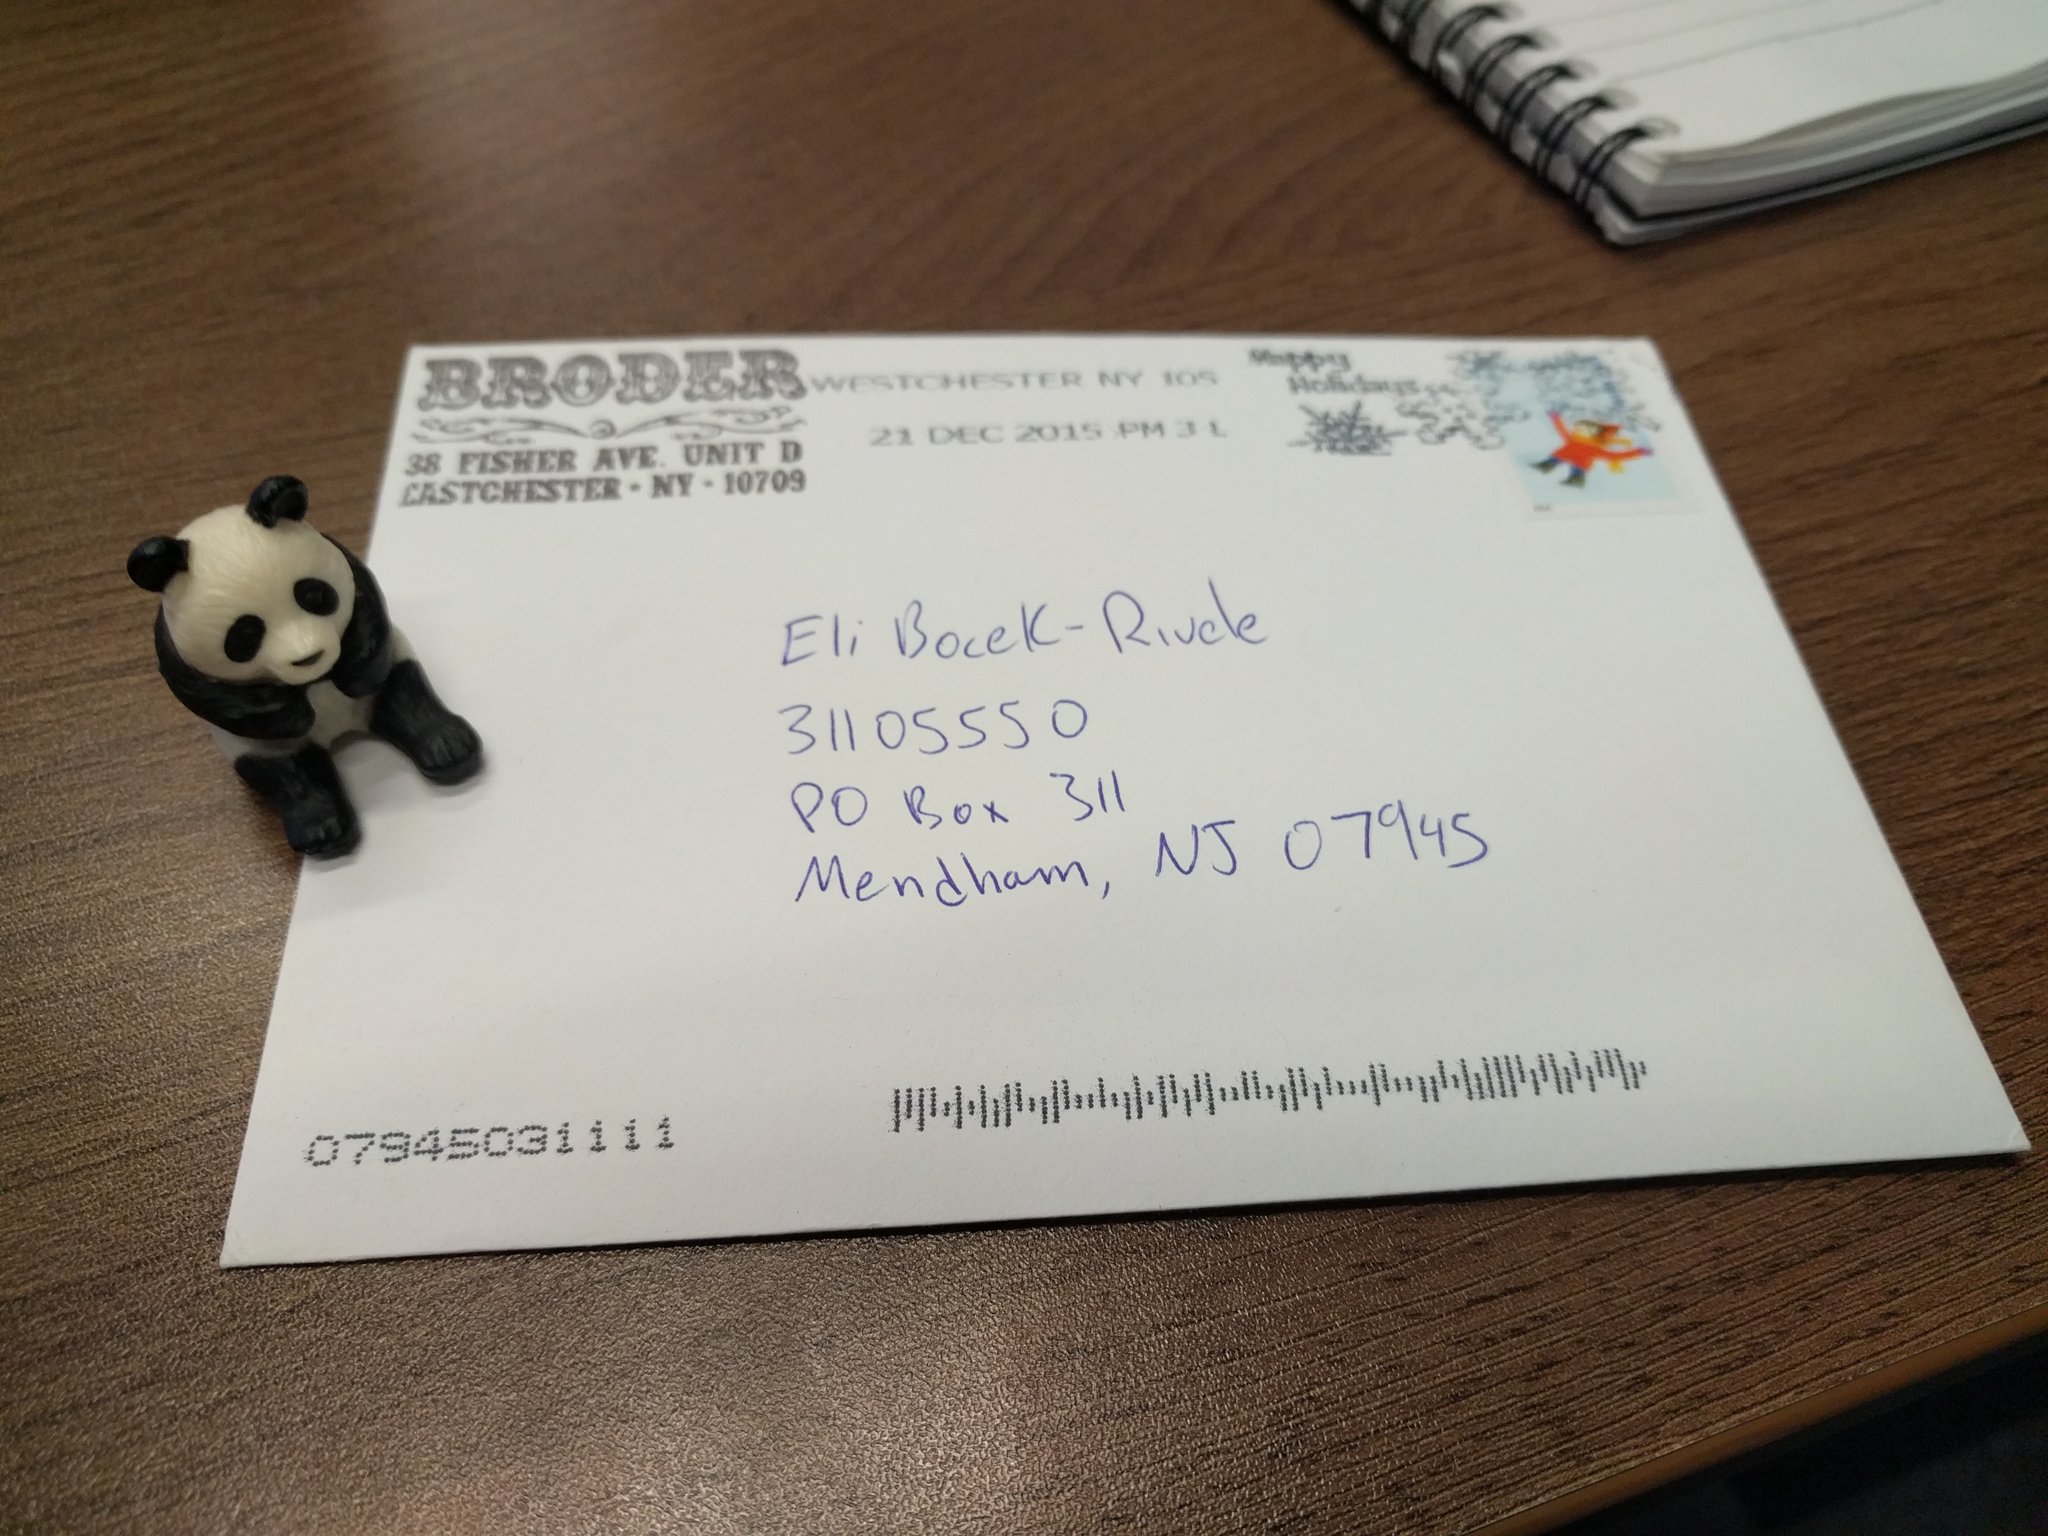 BRODER
38 FISHER AVE. UNIT D
EASTCHESTER · NY · 10709
WESTCHESTER NY 105
21 DEC 2015 PM 3 L
Happy
Holidays
Eli Bocek-Rivele
31105550
PO Box 311
Mendham, NJ 07945
07945031111